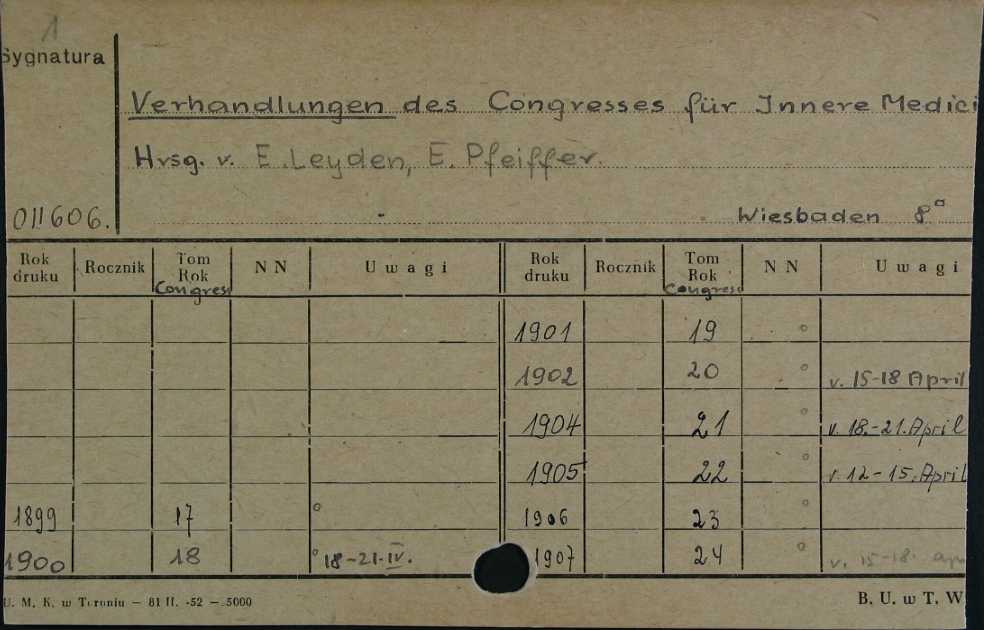 1
Sygnatura
Verhandlungen des Congresses für Innere Medici
Hrsg. v. E. Leyden, E. Pfeiffer.
011606.
Wiesbaden 8°
Rok druku Rocznik Tom Rok Congress NN Uwagi Rok druku Rocznik Tom Rok Congress NN Uwagi
1901 19 °
1902 20 ° v. 15-18 April
1904 21 ° v. 18.-21. April
1905 22 ° v. 12-15. April
1899 17 ° 1906 23 °
1900 18 ° 18-21.IV. 1907 24 ° v. 15-18. Apr
U. M. K. w Toruniu — 81 II. -52 — 5000 B. U. w T. W